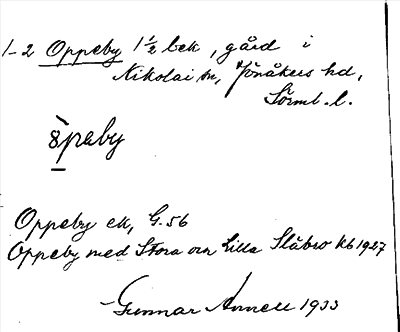 1-2 Oppeby 1 1/2 bek, gård i
Nikolai sn, Jönåkers hd,
Sörml. l.
ˋ8peby
Oppeby ek, G. 56
Oppeby med Stora och Lilla Slåbro kb 1927
Gunnar Annell 1933